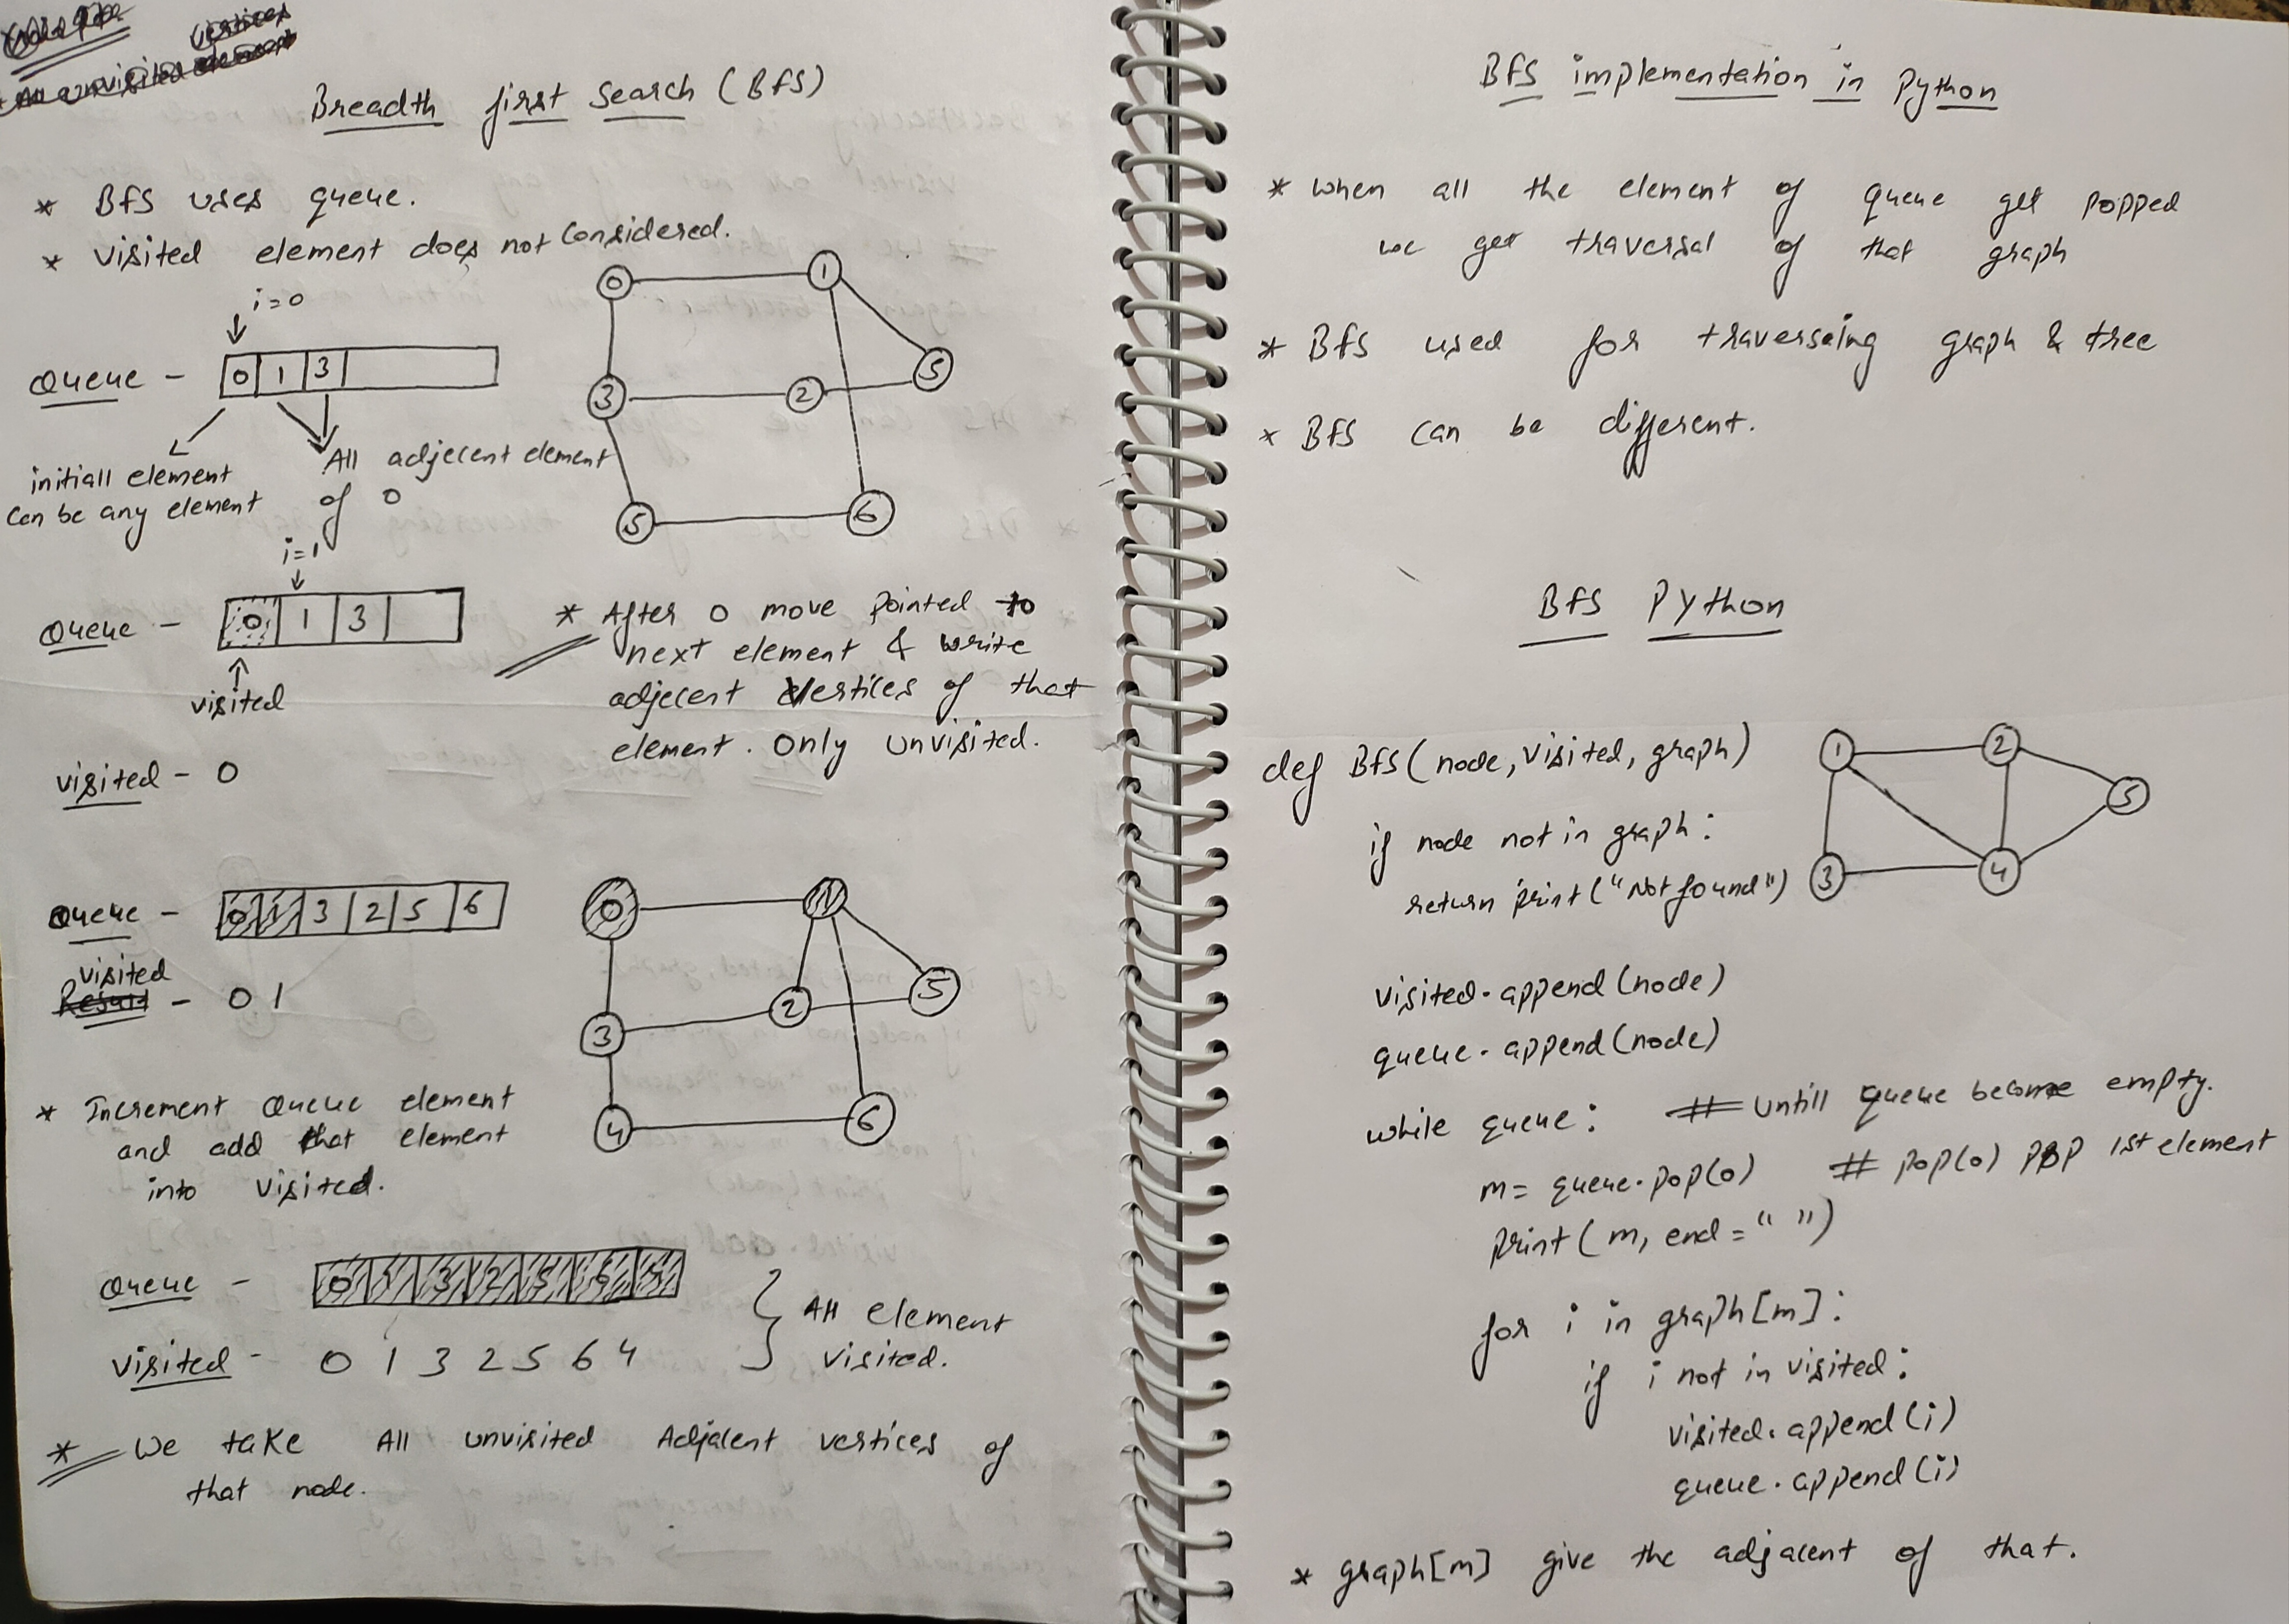 vertices
unvisited element
Breadth first Search (BfS)
* BfS uses queue.
* visited element does not Considered.
i=0
Queue - 0 1 3
initiall element
Can be any element
All adjecent element
of 0
0 1
3 2 5
5 6
i=1
Queue - 0 1 3
visited
visited - 0
* After 0 move pointed to
next element & write
adjecent Vertices of that
element. Only Unvisited.
Queue - 0 1 3 2 5 6
visited
Result - 0 1
0 1
3 2 5
4 6
* Increment Queue element
and add that element
into visited.
Queue - 0 1 3 2 5 6 4
visited - 0 1 3 2 5 6 4
All element
visited.
* We take All unvisited Adjacent vertices of
that node.
BfS implementation in Python
* when all the element of queue get popped
we get traversal of that graph
* BfS used for traverseing graph & tree
* BfS can be different.
BfS Python
def BfS(node, visited, graph)
if node not in graph:
return print("Not found")
1 2
5
3 4
visited.append(node)
queue.append(node)
while queue: # untill queue become empty.
m= queue.pop(0) # pop(0) pop 1st element
print(m, end=" ")
for i in graph[m]:
if i not in visited:
visited.append(i)
queue.append(i)
* graph[m] give the adjacent of that.